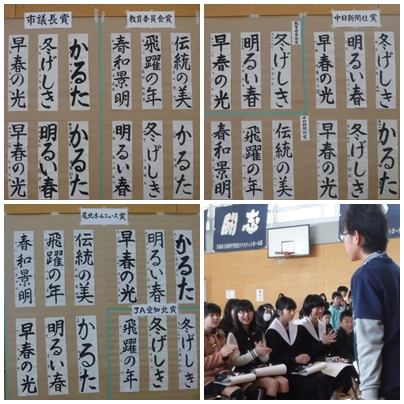 市議長賞
早春の光
冬げしき
かるた
早春の光
明るい春
かるた
教育委員会賞
春和景明
飛躍の年
伝統の美
明るい春
冬げしき
かるた
早春の光
明るい春
冬げしき
春和景明
飛躍の年
伝統の美
中日新聞社賞
早春の光
明るい春
冬げしき
中日新聞社賞
早春の光
かるた
かるた
尾北ホームニュース賞
春和景明
飛躍の年
伝統の美
早春の光
明るい春
かるた
早春の光
明るい春
かるた
JA愛知北賞
飛躍の年
冬げしき
冬げしき
闘志